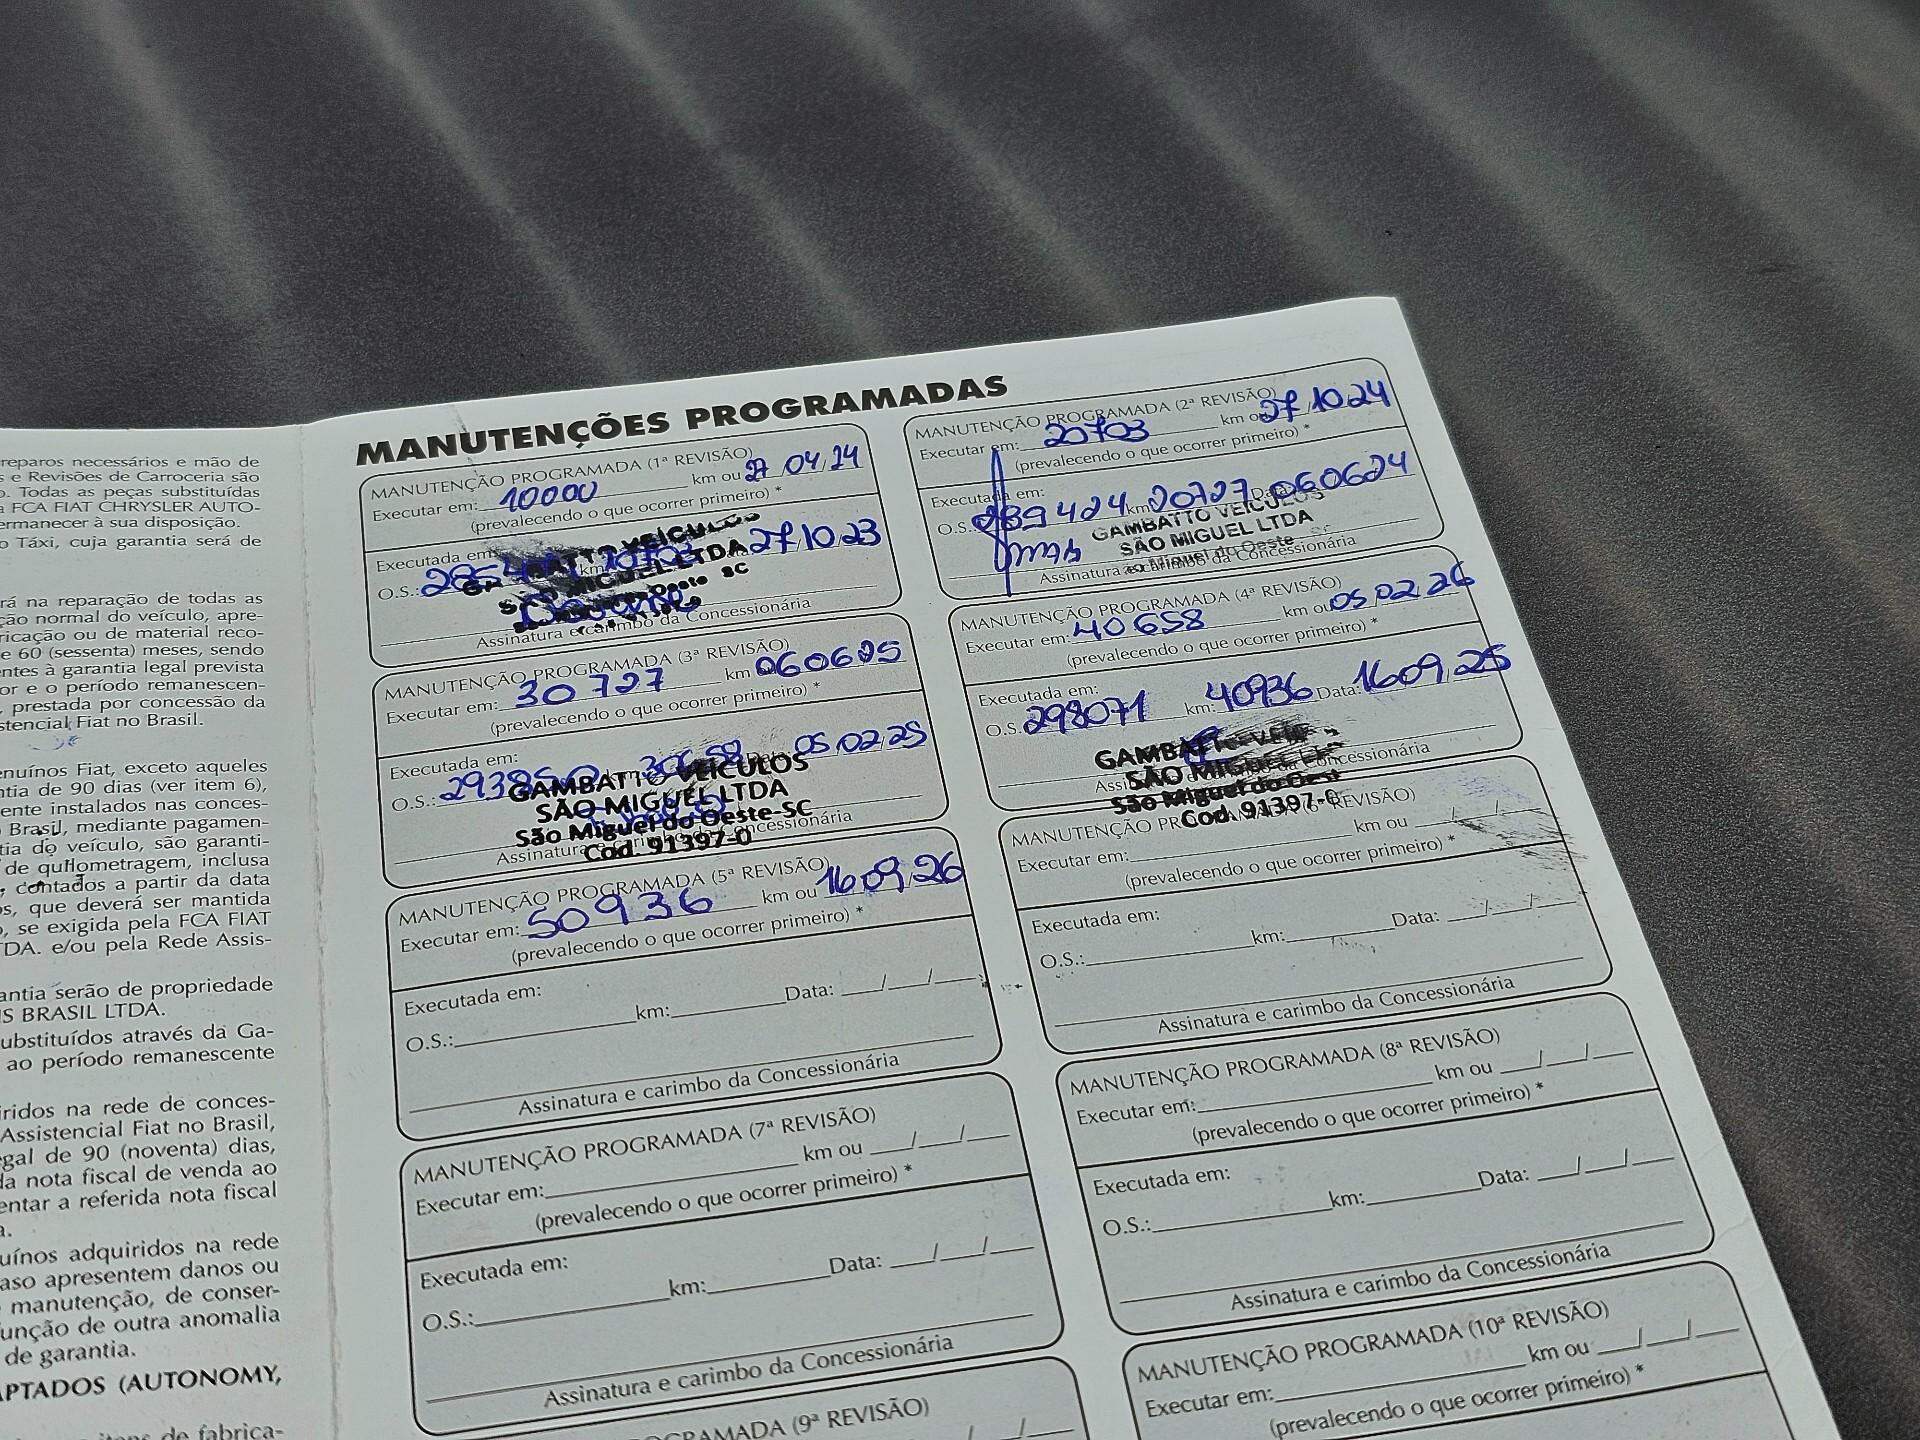 reparos necessários e mão de
s e Revisões de Carroceria são
o. Todas as peças substituídas
a FCA FIAT CHRYSLER AUTO-
ermanecer à sua disposição.
o Táxi, cuja garantia será de
rá na reparação de todas as
ção normal do veículo, apre-
ricação ou de material reco-
e 60 (sessenta) meses, sendo
entes à garantia legal prevista
or e o período remanescen-
, prestada por concessão da
stencial Fiat no Brasil.
enuínos Fiat, exceto aqueles
ntia de 90 dias (ver item 6),
ente instalados nas conces-
Brasil, mediante pagamen-
tia do veículo, são garanti-
de quilometragem, inclusa
, contados a partir da data
os, que deverá ser mantida
o, se exigida pela FCA FIAT
TDA. e/ou pela Rede Assis-
antia serão de propriedade
IS BRASIL LTDA.
ubstituídos através da Ga-
ao período remanescente
iridos na rede de conces-
Assistencial Fiat no Brasil,
egal de 90 (noventa) dias,
da nota fiscal de venda ao
entar a referida nota fiscal
a.
uínos adquiridos na rede
aso apresentem danos ou
manutenção, de conser-
unção de outra anomalia
de garantia.
APTADOS (AUTONOMY,
de fabrica-
MANUTENÇÕES PROGRAMADAS
MANUTENÇÃO PROGRAMADA (1ª REVISÃO)
Executar em: 10000 km ou 27/04/24
(prevalecendo o que ocorrer primeiro) *
Executada em:
O.S.: km: 10703 27/10/23
GAMBATTO VEÍCULOS
SÃO MIGUEL LTDA
Oeste SC
Assinatura e carimbo da Concessionária
MANUTENÇÃO PROGRAMADA (2ª REVISÃO)
Executar em: 20703 km ou 27/10/24
(prevalecendo o que ocorrer primeiro) *
Executada em:
O.S.: 289424 km: 20727 Data: 060624
GAMBATTO VEÍCULOS
SÃO MIGUEL LTDA
São Miguel do Oeste SC
Assinatura e carimbo da Concessionária
MANUTENÇÃO PROGRAMADA (3ª REVISÃO)
Executar em: 30727 km 060625
(prevalecendo o que ocorrer primeiro) *
Executada em:
O.S.: 293850 30658 05/02/25
GAMBATTO VEÍCULOS
SÃO MIGUEL LTDA
São Miguel do Oeste-SC
Cod. 91397-0
Assinatura e carimbo da Concessionária
MANUTENÇÃO PROGRAMADA (4ª REVISÃO)
Executar em: 40658 km ou 05/02/26
(prevalecendo o que ocorrer primeiro) *
Executada em:
O.S. 298071 km: 40936 Data: 16/09/25
GAMBATTO VEÍ
SÃO MIGUEL
São Miguel do Oest
Cod. 91397-0
Assinatura e carimbo da Concessionária
MANUTENÇÃO PROGRAMADA (5ª REVISÃO)
Executar em: 50936 km ou 16/09/26
(prevalecendo o que ocorrer primeiro) *
Executada em:
O.S.: km: Data: / /
Assinatura e carimbo da Concessionária
MANUTENÇÃO PROGRAMADA (6ª REVISÃO)
Executar em: km ou / /
(prevalecendo o que ocorrer primeiro) *
Executada em:
O.S.: km: Data: / /
Assinatura e carimbo da Concessionária
MANUTENÇÃO PROGRAMADA (7ª REVISÃO)
Executar em: km ou / /
(prevalecendo o que ocorrer primeiro) *
Executada em:
O.S.: km: Data: / /
Assinatura e carimbo da Concessionária
MANUTENÇÃO PROGRAMADA (8ª REVISÃO)
Executar em: km ou / /
(prevalecendo o que ocorrer primeiro) *
Executada em:
O.S.: km: Data: / /
Assinatura e carimbo da Concessionária
PROGRAMADA (9ª REVISÃO)
MANUTENÇÃO PROGRAMADA (10ª REVISÃO)
Executar em: km ou / /
(prevalecendo o que ocorrer primeiro) *